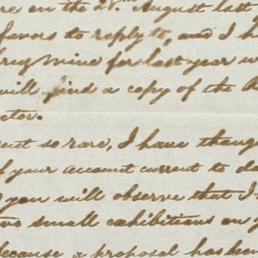 re on the 2 August last
favors to reply to, and I h
mine for last year w
will find a copy of the A
ctor.
ent so rare, I have though
f your account current to da
you will observe that I
two small exhibitions on
because a proposal has been